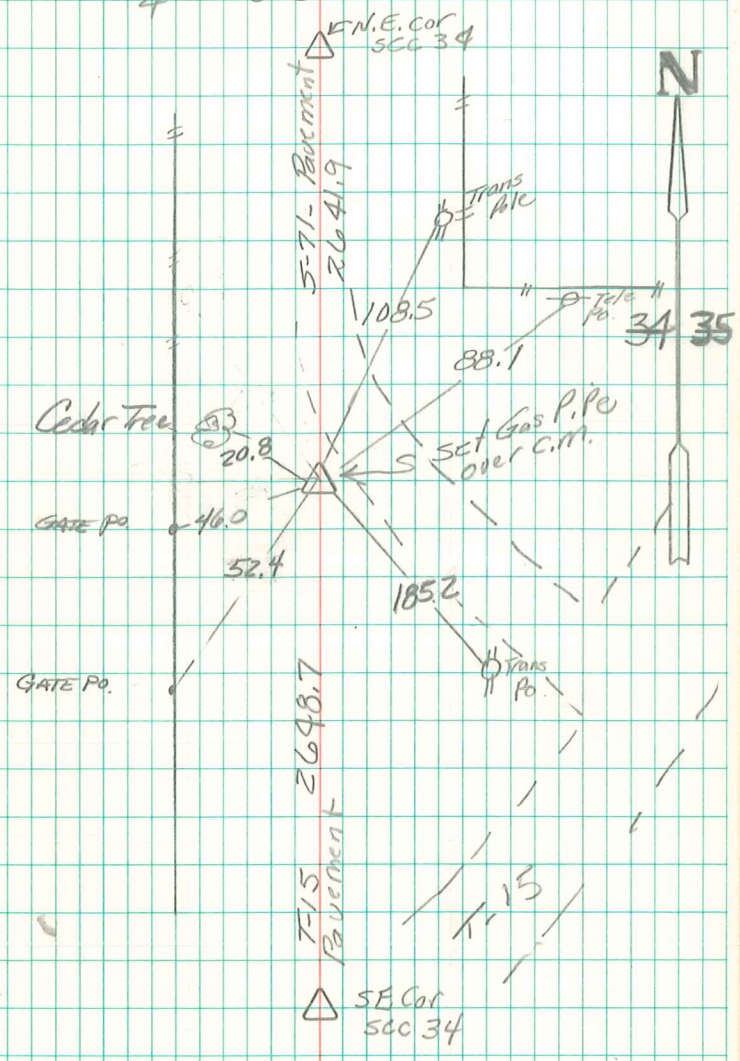 N.E. Cor
SEC 34
N
5-71- Pavement
2641.9
Trans
Pole
Tele
Po.
34 35
108.5
88.1
Cedar Tree
20.8
Set Gas Pipe
over C.M.
GATE PO.
46.0
52.4
185.2
GATE PO.
Trans
Po.
T-15 2648.7
Pavement
T-15
SE Cor
SEC 34